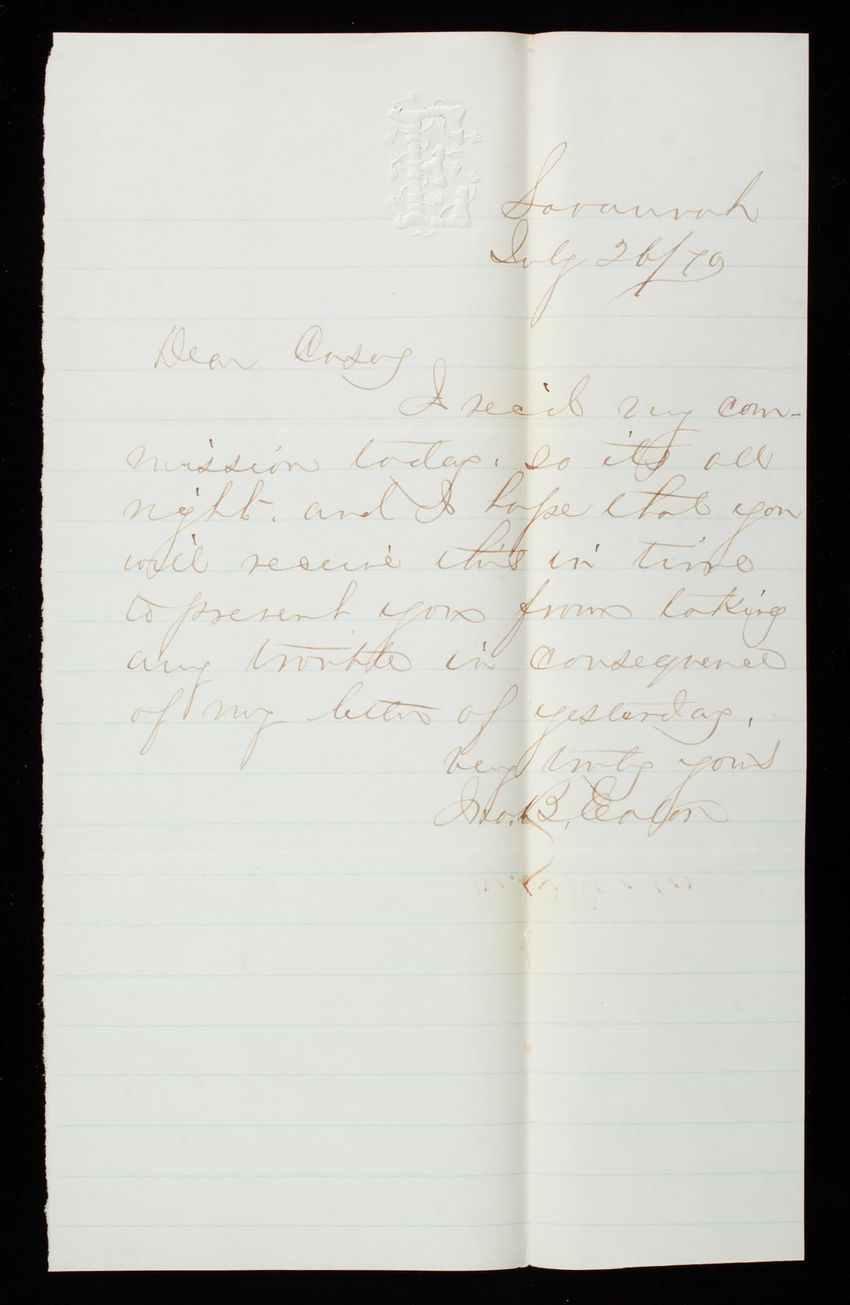 Savannah
July 26/79
Dear Casey
I rec'd my com-
mission today. so its all
right. and I hope that you
will receive this in time
to prevent you from taking
any trouble in consequence
of my letter of yesterday.
Very truly yours
Jno. B. Eaton